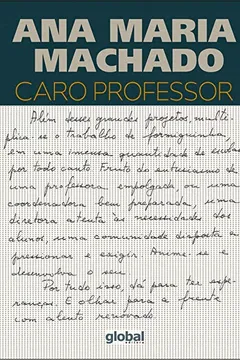 ANA MARIA
MACHADO
CARO PROFESSOR
Além desses grandes projetos, multi-
plica-se o trabalho de formiguinha,
em uma imensa quantidade de escolas
por todo canto. Fruto do entusiasmo de
uma professora empolgada, ou uma
coordenadora bem preparada, uma
diretora atenta às necessidades dos
alunos, uma comunidade disposta a
pressionar e exigir. Anime-se e
desenvolva o seu.
Por tudo isso, dá para ter espe-
ranças. E olhar para a frente
com alento renovado.
global